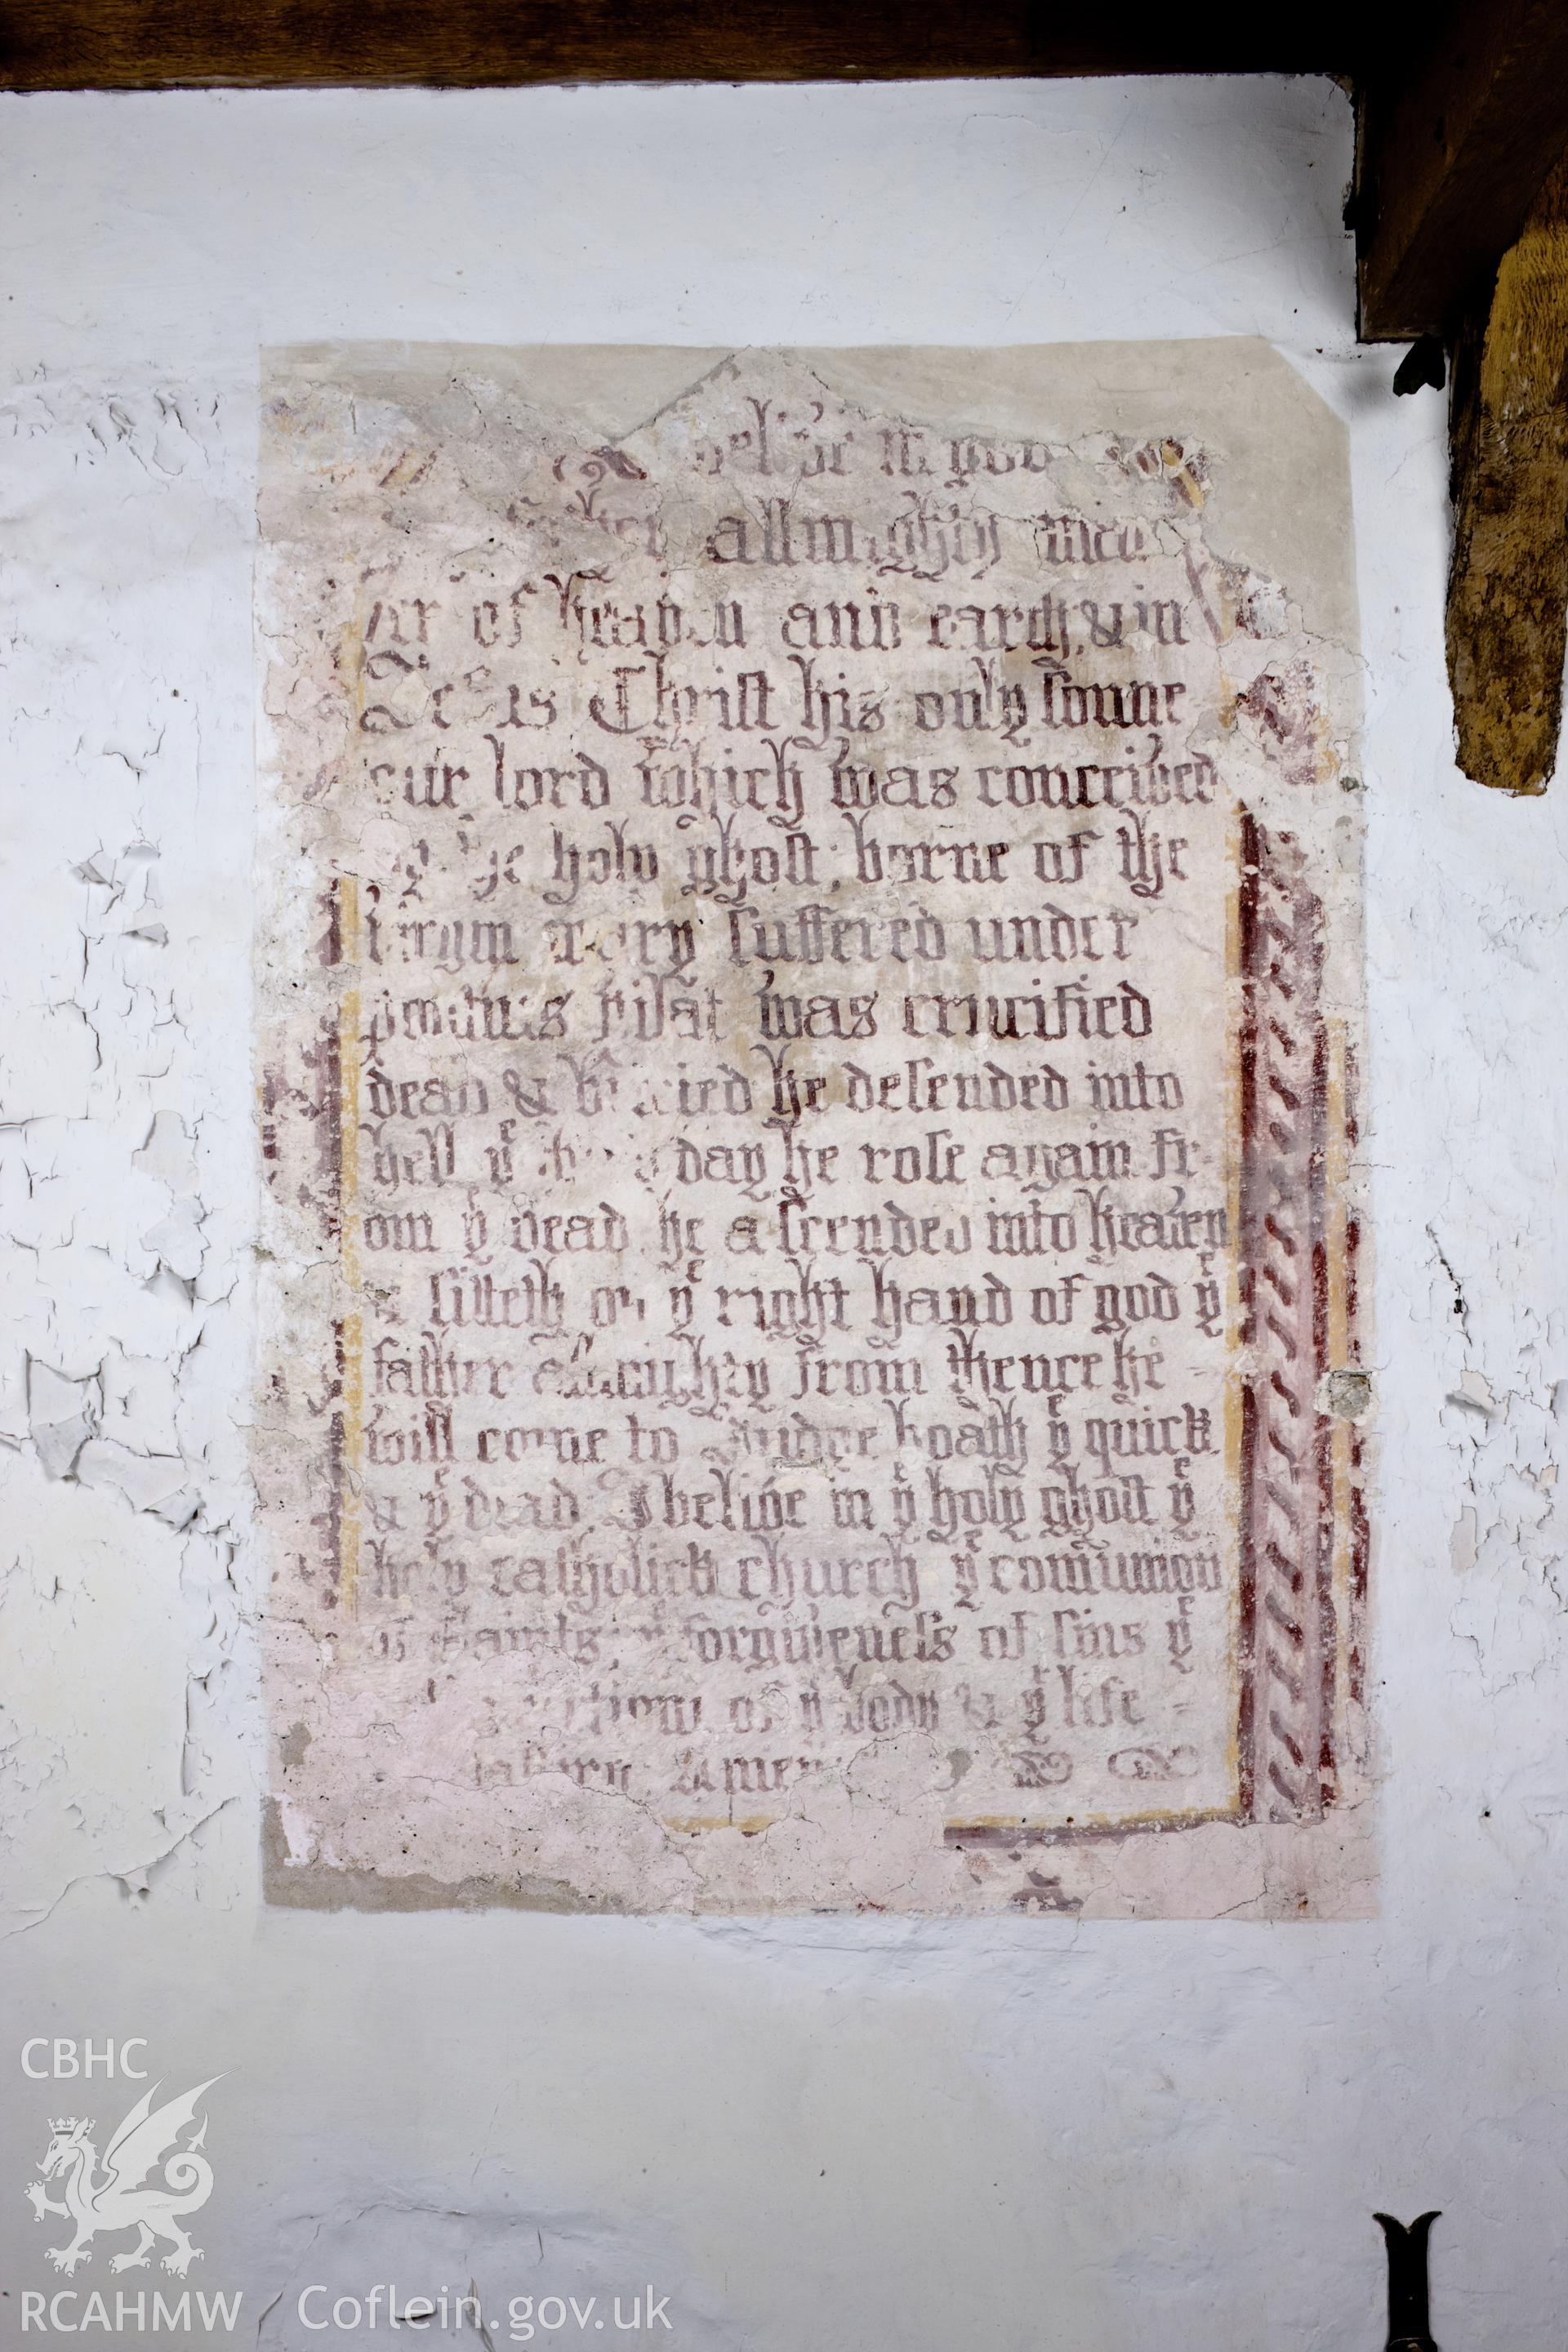 in god
allmighty
of heaven and earth, & in
Christ his only sonne
our lord which was conceived
holy ghost, borne of the
virgin mary suffered under
pontius pilat was crucified
dead & buried he desended into
hell yͤ day he rose again fr-
om yͤ dead he ascended into heaven
& sitteth on yͤ right hand of god yͤ
father almighty from thence he -
will come to Judge boath yͤ quick
& yͤ dead, I belive in yͤ holy ghost yͤ
holy catholick church yͤ comunion
of Saints, yͤ forgiveness of sins yͤ
of yͤ body & yͤ life -
Amen
CBHC
RCAHMW / Coflein.gov.uk